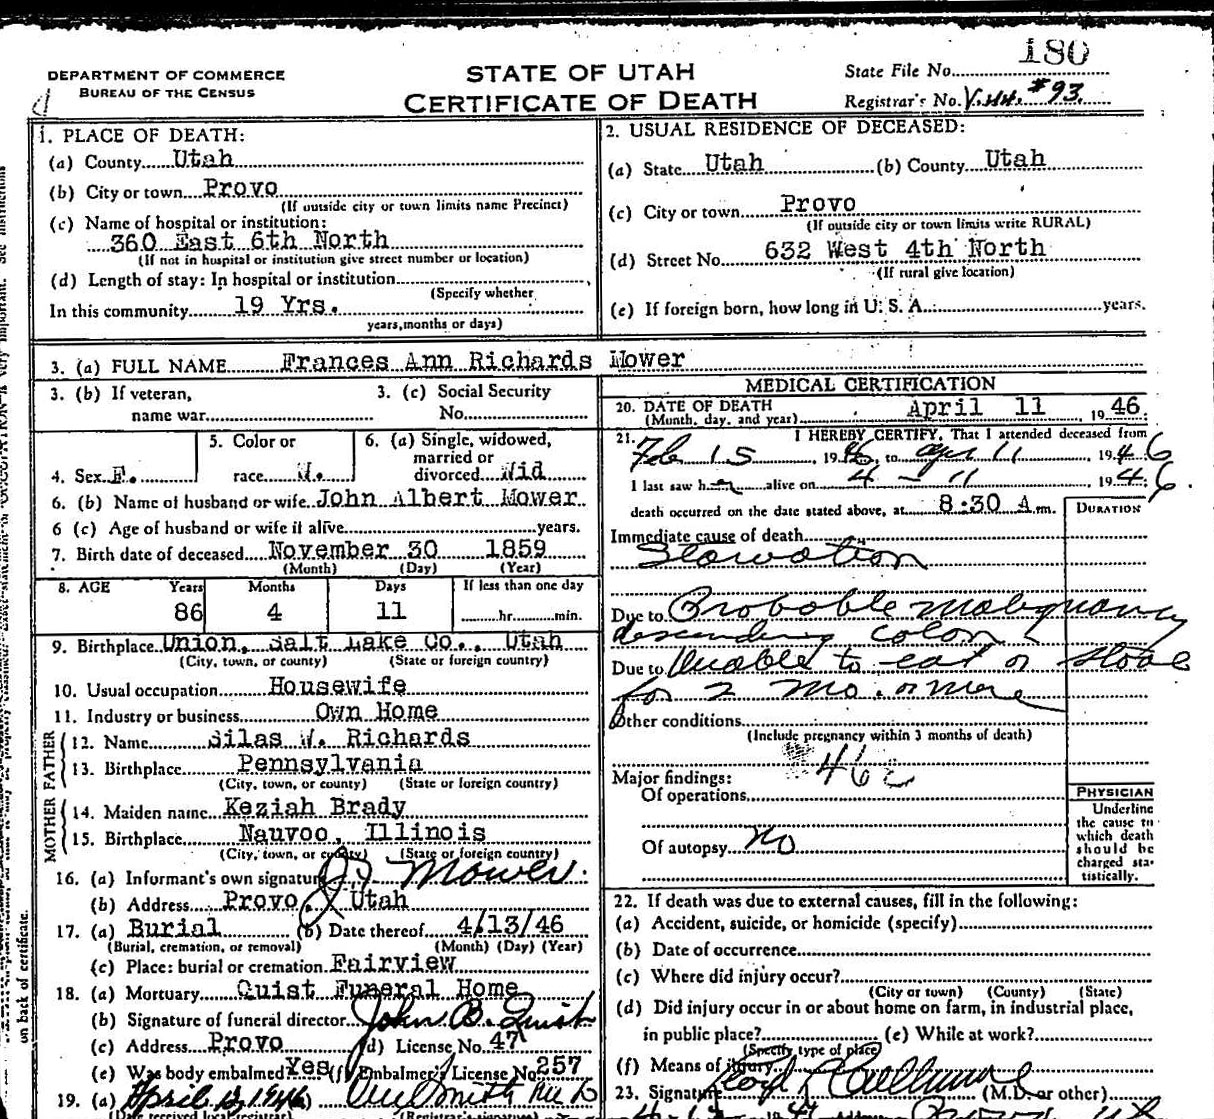 180
DEPARTMENT OF COMMERCE
BUREAU OF THE CENSUS
STATE OF UTAH
CERTIFICATE OF DEATH
State File No.
Registrar's No. #93
1. PLACE OF DEATH:
(a) County Utah
(b) City or town Provo
(If outside city or town limits name Precinct)
(c) Name of hospital or institution:
360 East 6th North
(If not in hospital or institution give street number or location)
(d) Length of stay: In hospital or institution
(Specify whether
In this community 19 Yrs.
years, months or days)
2. USUAL RESIDENCE OF DECEASED:
(a) State Utah (b) County Utah
(c) City or town Provo
(If outside city or town limits write RURAL)
(d) Street No. 632 West 4th North
(If rural give location)
(e) If foreign born, how long in U. S. A. years.
3. (a) FULL NAME Frances Ann Richards Mower
3. (b) If veteran,
name war
3. (c) Social Security
No.
4. Sex F.
5. Color or
race W.
6. (a) Single, widowed,
married or
divorced Wid
6. (b) Name of husband or wife John Albert Mower
6 (c) Age of husband or wife if alive years.
7. Birth date of deceased November 30 1859
(Month) (Day) (Year)
8. AGE Years Months Days If less than one day
86 4 11 hr. min.
9. Birthplace Union, Salt Lake Co., Utah
(City, town, or county) (State or foreign country)
10. Usual occupation Housewife
11. Industry or business Own Home
FATHER
12. Name Silas W. Richards
13. Birthplace Pennsylvania
(City, town, or county) (State or foreign country)
MOTHER
14. Maiden name Keziah Brady
15. Birthplace Nauvoo, Illinois
(City, town, or county) (State or foreign country)
16. (a) Informant's own signature Mower
(b) Address Provo, Utah
17. (a) Burial (b) Date thereof 4/13/46
(Burial, cremation, or removal) (Month) (Day) (Year)
(c) Place: burial or cremation Fairview
18. (a) Mortuary Quist Funeral Home
(b) Signature of funeral director John B. Quist
(c) Address Provo (d) License No. 47
(e) Was body embalmed? Yes (f) Embalmer's License No. 257
19. (a) April 1946
(Date received local registrar) (Registrar's signature)
MEDICAL CERTIFICATION
20. DATE OF DEATH
(Month, day, and year) April 11, 1946.
21. I HEREBY CERTIFY, That I attended deceased from
Feb 15, 1946, to Apr 11, 1946
I last saw her alive on 4-11, 1946.
death occurred on the date stated above, at 8:30 A.m.
DURATION
Immediate cause of death
Starvation
Due to Probable malignancy
descending colon
Due to Unable to eat or
for 2 mo. or more
Other conditions
(Include pregnancy within 3 months of death)
46
Major findings:
Of operations
Of autopsy no
PHYSICIAN
Underline
the cause to
which death
should be
charged sta-
tistically.
22. If death was due to external causes, fill in the following:
(a) Accident, suicide, or homicide (specify)
(b) Date of occurrence
(c) Where did injury occur?
(City or town) (County) (State)
(d) Did injury occur in or about home on farm, in industrial place,
in public place? (e) While at work?
(Specify type of place)
(f) Means of injury
23. Signature (M.D. or other)
on back of certificate.